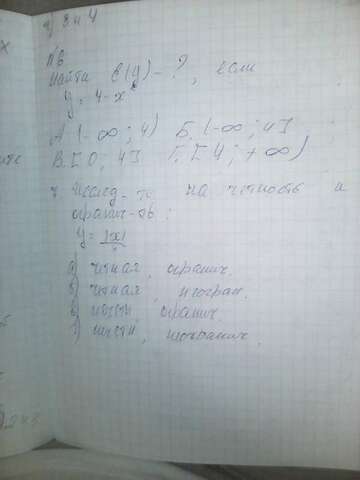 г) 3 и 4
N6
Найти E(y) - ?, если
y = 4 - x²
А. (-∞; 4) Б. (-∞; 4]
В. [0; 4] Г. [4; +∞)
7. Исслед-ть на чётность и
огранич-ть:
y = |x|
а) чётная, огранич.
б) чётная, неогран.
в) нечётн, огранич.
г) нечётн, неогранич.